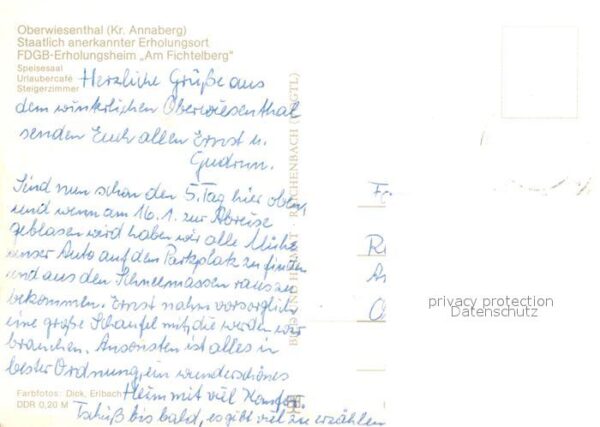 Oberwiesenthal (Kr. Annaberg)
Staatlich anerkannter Erholungsort
FDGB-Erholungsheim „Am Fichtelberg"
Speisesaal
Urlaubercafé
Steigerzimmer
Herzliche Grüße aus
dem winterlichen Oberwiesenthal
senden Euch allen Ernst u.
Gudrun.
Sind nun schon den 5. Tag hier oben,
und wenn am 16.1. zur Abreise
geblasen wird haben wir alle Mühe
unser Auto auf dem Parkplatz zu finden
und aus den Schneemassen raus zu
bekommen. Ernst nahm vorsorglich
eine große Schaufel mit, die werden wir
brauchen. Ansonsten ist alles in
bester Ordnung, ein wunderschönes
Heim mit viel Komfort.
Tschüß bis bald, es gibt viel zu erzählen
Farbfotos: Dick, Erlbach
DDR 0,20 M
BILD UND HEIMAT REICHENBACH (VOGTL)
privacy protection
Datenschutz